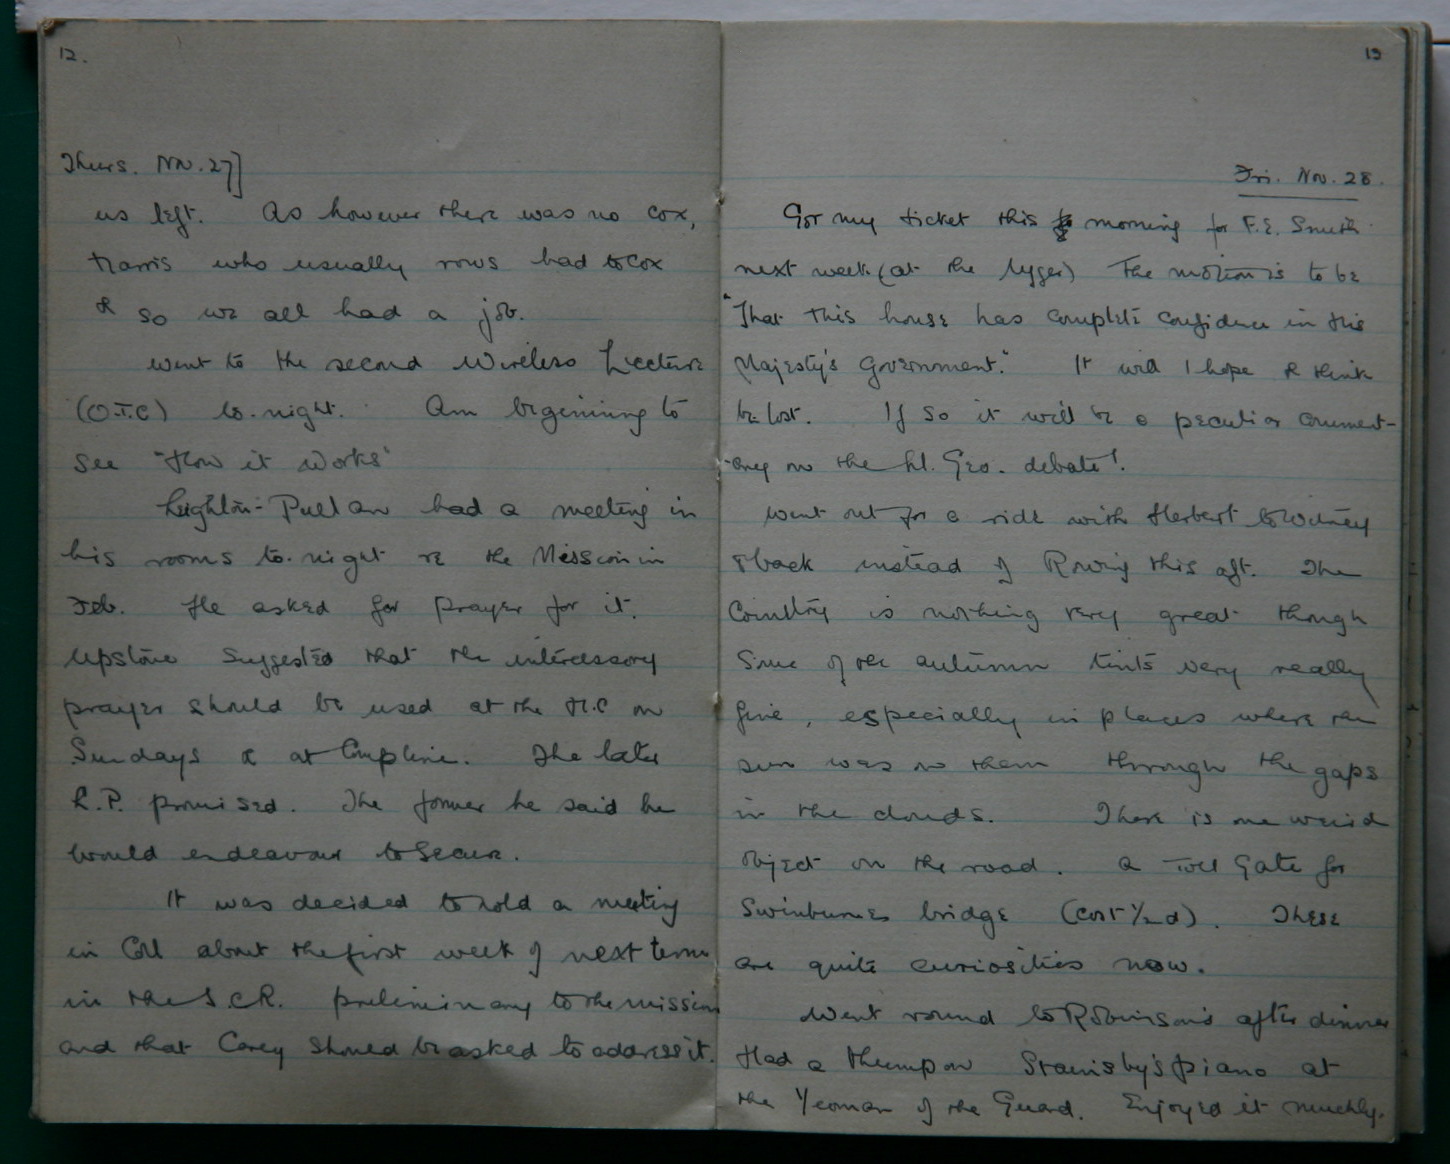 12.
Thurs. Nov. 27]
us left. As however there was no cox,
Harris who usually rows had to cox
& so we all had a job.
Went to the second Wireless Lecture
(O.T.C) to-night. Am beginning to
see "How it Works"
Leighton-Pullan had a meeting in
his rooms to-night re the Mission in
Feb. He asked for prayer for it.
Upstone suggested that the intercessory
prayer should be used at the H.C on
Sundays & at Compline. The later
L.P. promised. The former he said he
would endeavour to secure.
It was decided to hold a meeting
in Coll about the first week of next term
in the J.C.R. preliminary to the mission
and that Carey should be asked to address it.
13
Fri. Nov. 28.
Got my ticket this morning for F.E. Smith
next week (at the Ugger) The motion is to be
"That this house has complete confidence in His
Majesty's Government." It will I hope & think
be lost. If so it will be a peculiar comment-
-ary on the Ll. Geo. debate!
Went out for a ride with Herbert to Witney
& back instead of Rowing this aft. The
Country is nothing very great though
some of the autumn tints very really
fine, especially in places where the
sun was on them through the gaps
in the clouds. There is one weird
object on the road. A Toll Gate for
Swinburnes bridge (cost ½d). These
are quite curiosities now.
Went round to Robinson's after dinner
Had a thump on Stainsby's piano at
the Yeoman of the Guard. Enjoyed it muchly.